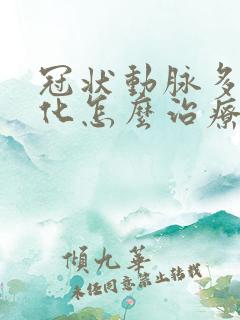 冠状動脉多
化怎麼治療
傾九華
未经同意禁止转载